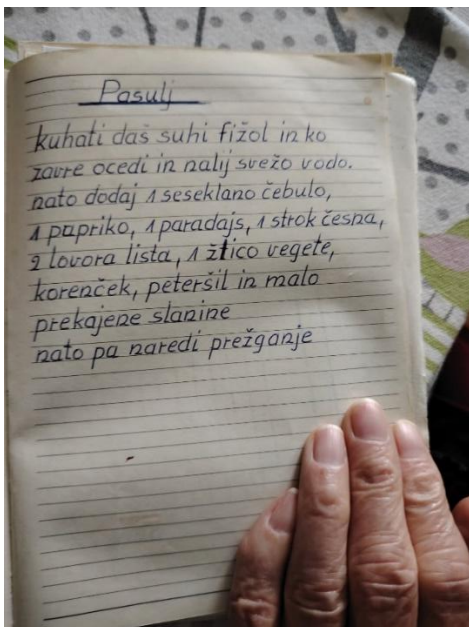 Pasulj
kuhati daš suhi fižol in ko
zavre ocedi in nalij svežo vodo.
nato dodaj 1 seseklano čebulo,
1 papriko, 1 paradajs, 1 strok česna,
2 lovora lista, 1 žtico vegete,
korenček, peteršil in malo
prekajene slanine
nato pa naredi prežganje